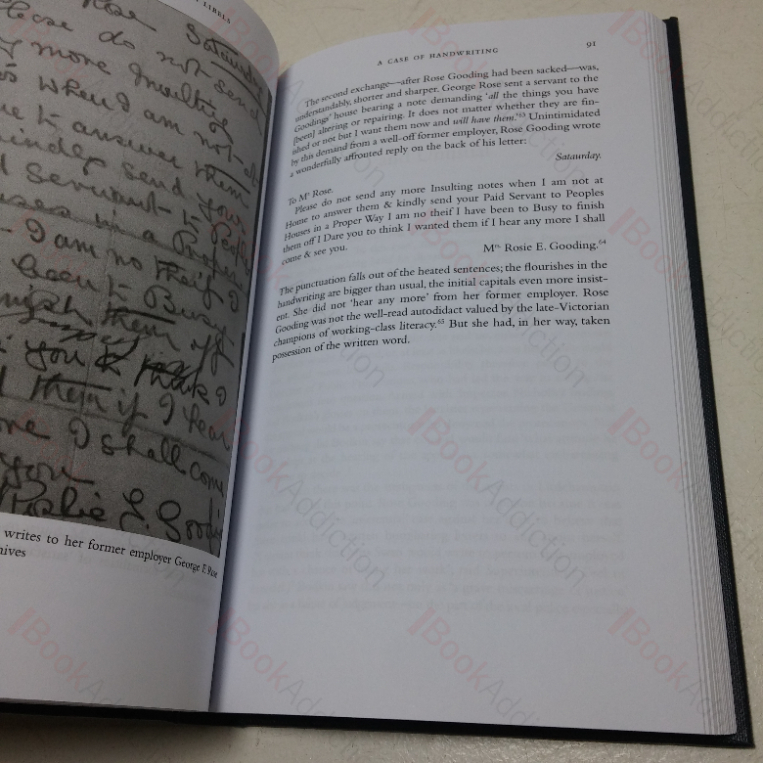 LIBELS
Rose Sataurday
Please do not send
more Insulting
when I am not at
to answer them
kindley send your
Servant to Peoples
in a Proper
I am no theif I
been to Busy
finish them off
you think I
them if I hear
I shall come
you
Rosie E. Gooding
writes to her former employer George F. Rose
A CASE OF HANDWRITING 91
The second exchange—after Rose Gooding had been sacked—was,
understandably, shorter and sharper. George Rose sent a servant to the
Goodings' house bearing a note demanding 'all the things you have
[been] altering or repairing. It does not matter whether they are fin-
ished or not but I want them now and will have them.'63 Unintimidated
by this demand from a well-off former employer, Rose Gooding wrote
a wonderfully affronted reply on the back of his letter:
Sataurday.
To Mr Rose.
Please do not send any more Insulting notes when I am not at
Home to answer them & kindly send your Paid Servant to Peoples
Houses in a Proper Way I am no theif I have been to Busy to finish
them off I Dare you to think I wanted them if I hear any more I shall
come & see you.
Mrs. Rosie E. Gooding.64
The punctuation falls out of the heated sentences; the flourishes in the
handwriting are bigger than usual, the initial capitals even more insist-
ent. She did not 'hear any more' from her former employer. Rose
Gooding was not the well-read autodidact valued by the late-Victorian
champions of working-class literacy.65 But she had, in her way, taken
possession of the written word.
BookAddiction